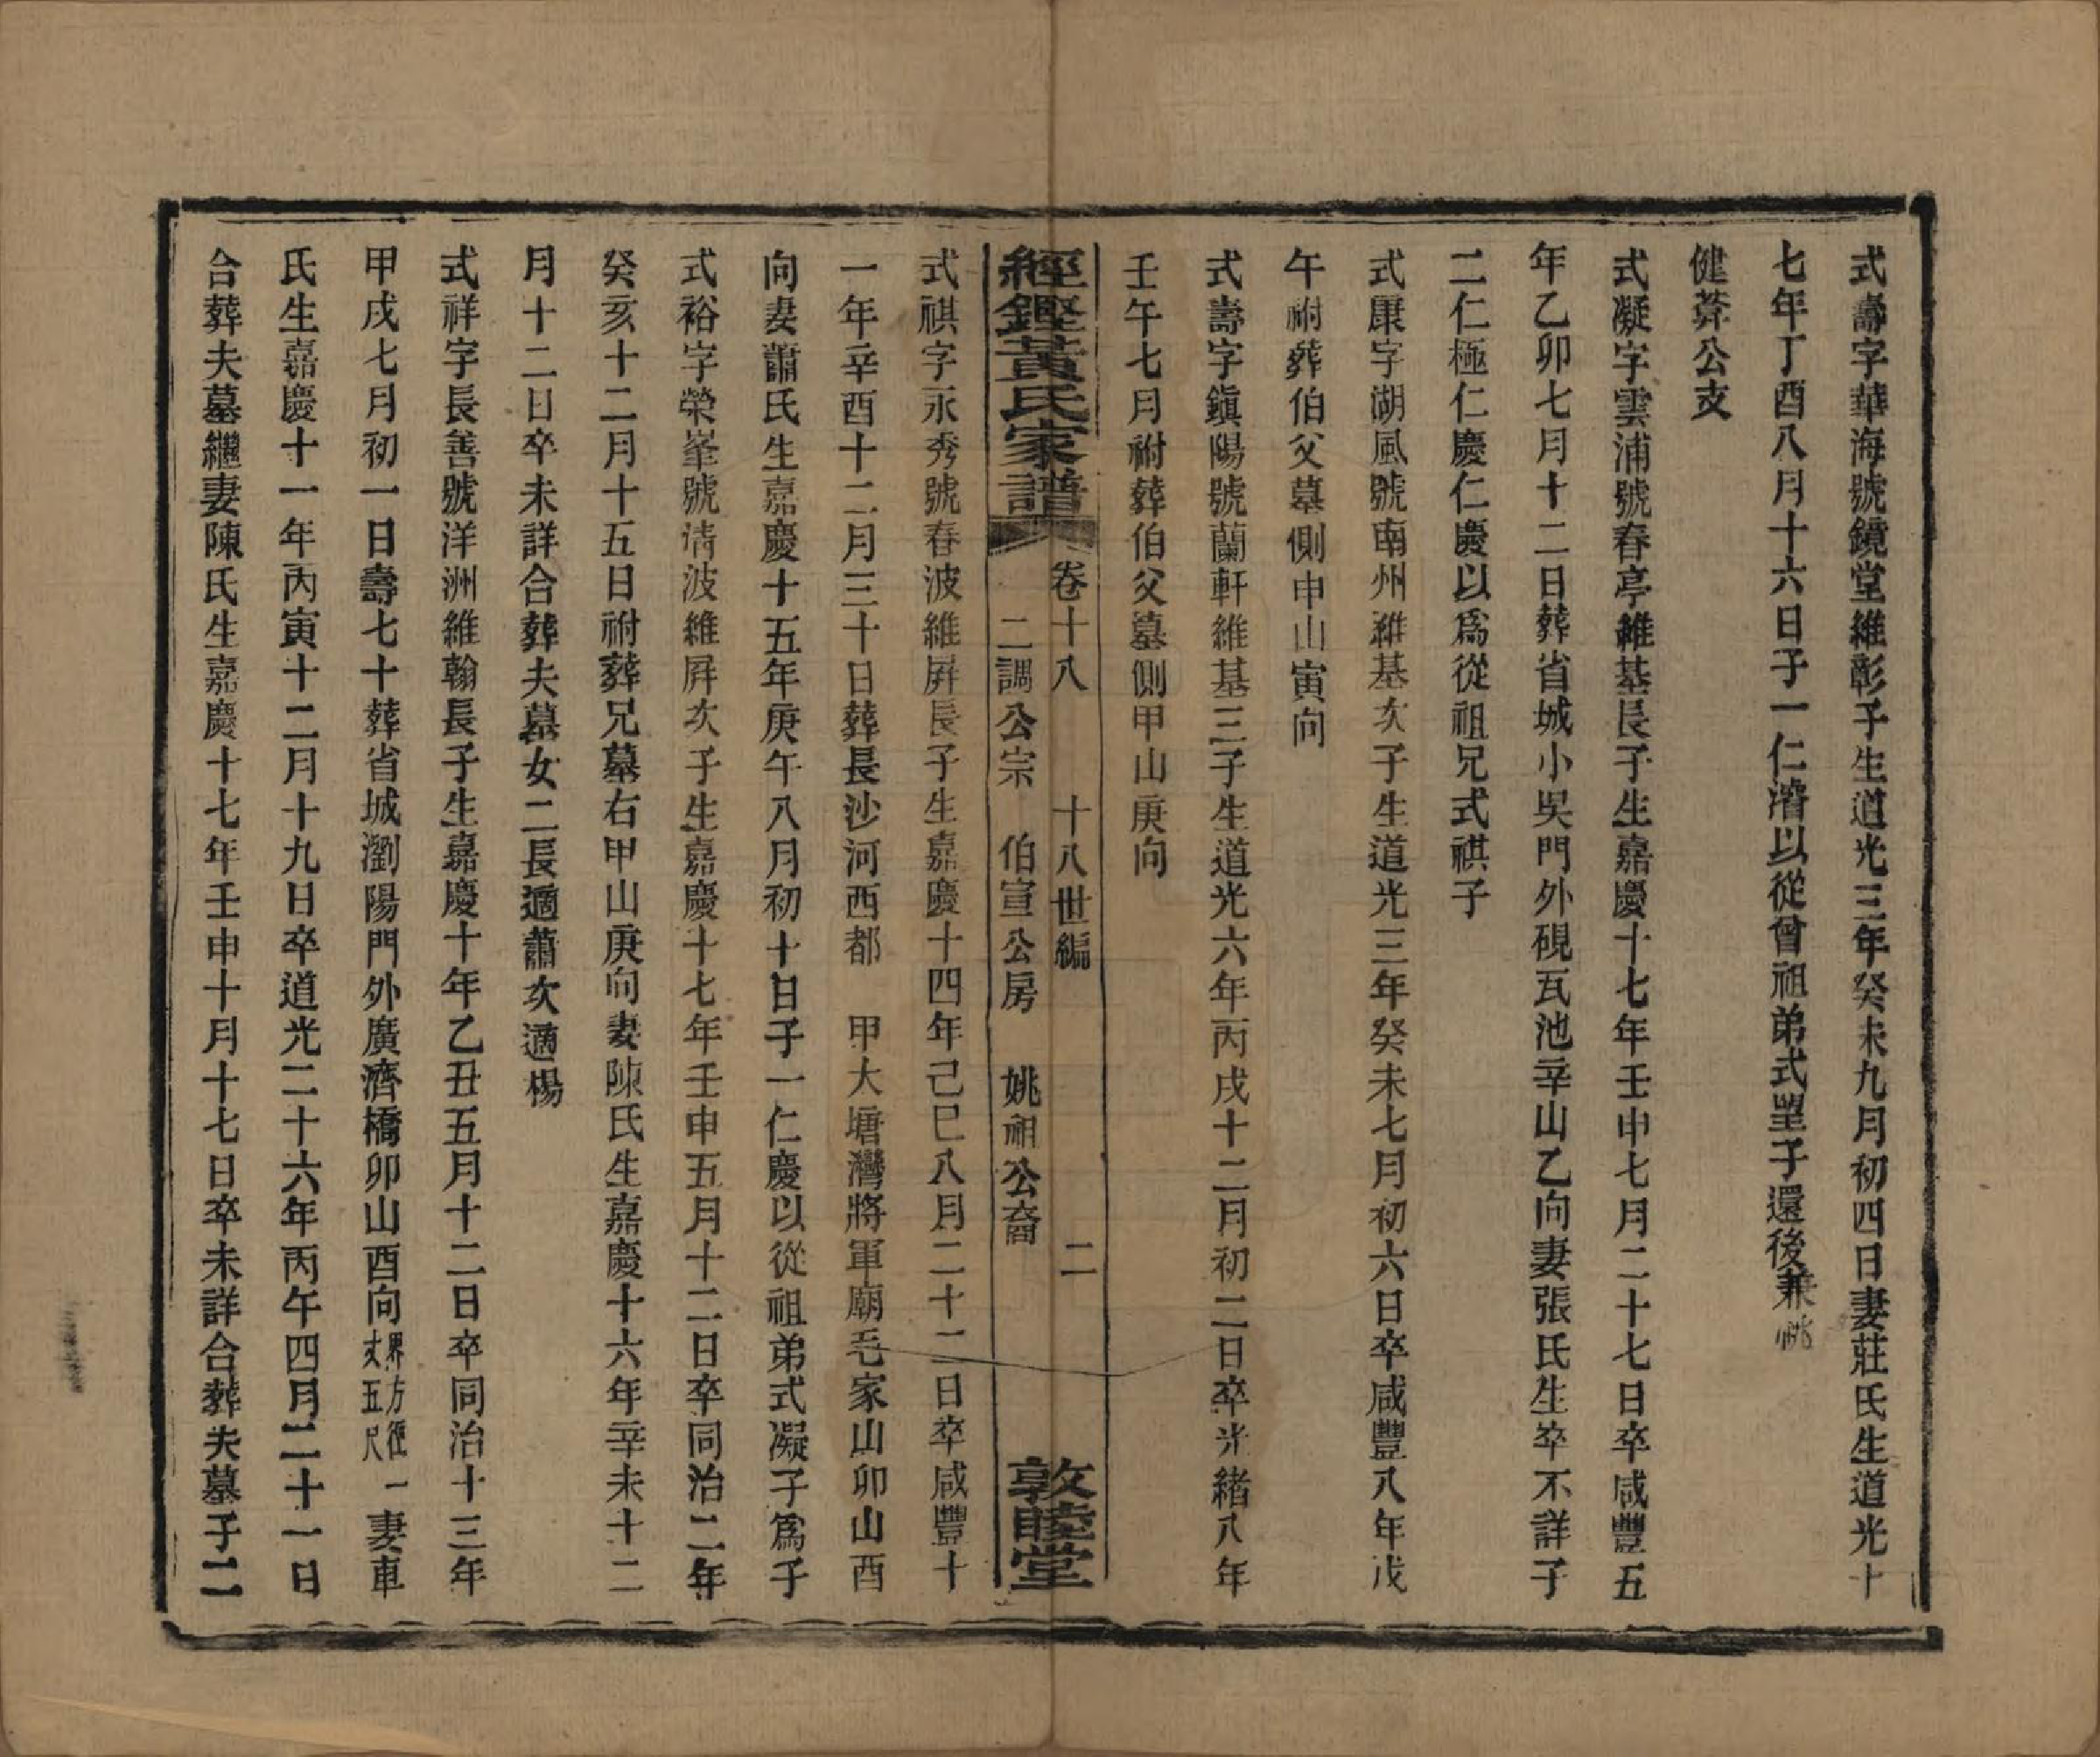 式壽字華海號鏡堂維彰子生道光三年癸未九月初四日妻莊氏生道光十
七年丁酉八月十六日子一仁濬以從曾祖弟式堃子還後兼祧
健菴公支
式凝字雲浦號春亭維基長子生嘉慶十七年壬申七月二十七日卒咸豐五
年乙卯七月十二日葬省城小吳門外硯瓦池辛山乙向妻張氏生卒不詳子
二仁極仁慶仁慶以爲從祖兄式祺子
式康字湖風號南州維基次子生道光三年癸未七月初六日卒咸豐八年戊
午祔葬伯父墓側申山寅向
式壽字鎭陽號蘭軒維基三子生道光六年丙戌十二月初二日卒光緒八年
壬午七月祔葬伯父墓側甲山庚向
經鏗黃氏家譜 卷十八 十八世編 二
二調公宗 伯宣公房 姚祖公裔 敦睦堂
式祺字永秀號春波維屛長子生嘉慶十四年己巳八月二十二日卒咸豐十
一年辛酉十二月三十日葬長沙河西都 甲大塘灣將軍廟毛家山卯山酉
向妻蕭氏生嘉慶十五年庚午八月初十日子一仁慶以從祖弟式凝子爲子
式裕字榮峯號清波維屛次子生嘉慶十七年壬申五月十二日卒同治二年
癸亥十二月十五日祔葬兄墓右甲山庚向妻陳氏生嘉慶十六年辛未十二
月十二日卒未詳合葬夫墓女二長適蕭次適楊
式祥字長善號洋洲維翰長子生嘉慶十年乙丑五月十二日卒同治十三年
甲戌七月初一日壽七十葬省城瀏陽門外廣濟橋卯山酉向界方徑一丈五尺妻車
氏生嘉慶十一年丙寅十二月十九日卒道光二十六年丙午四月二十一日
合葬夫墓繼妻陳氏生嘉慶十七年壬申十月十七日卒未詳合葬夫墓子二